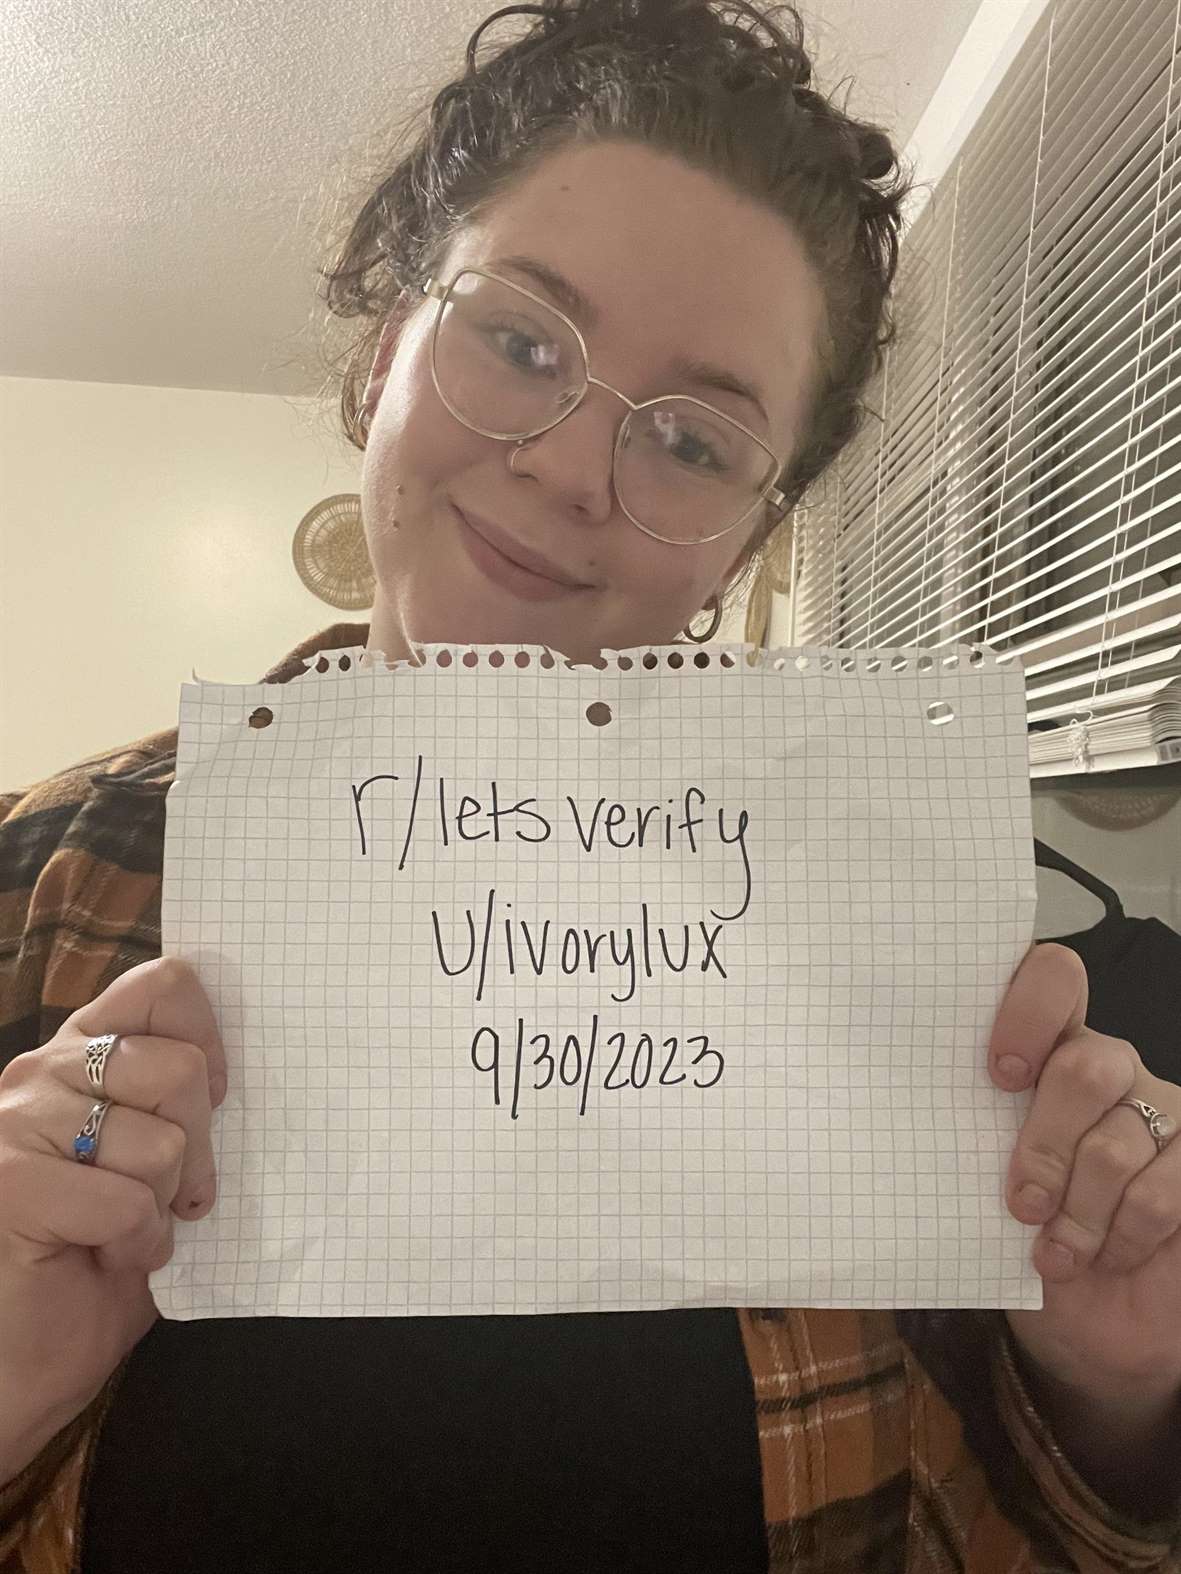 r/letsverify
u/ivorylux
9/30/2023